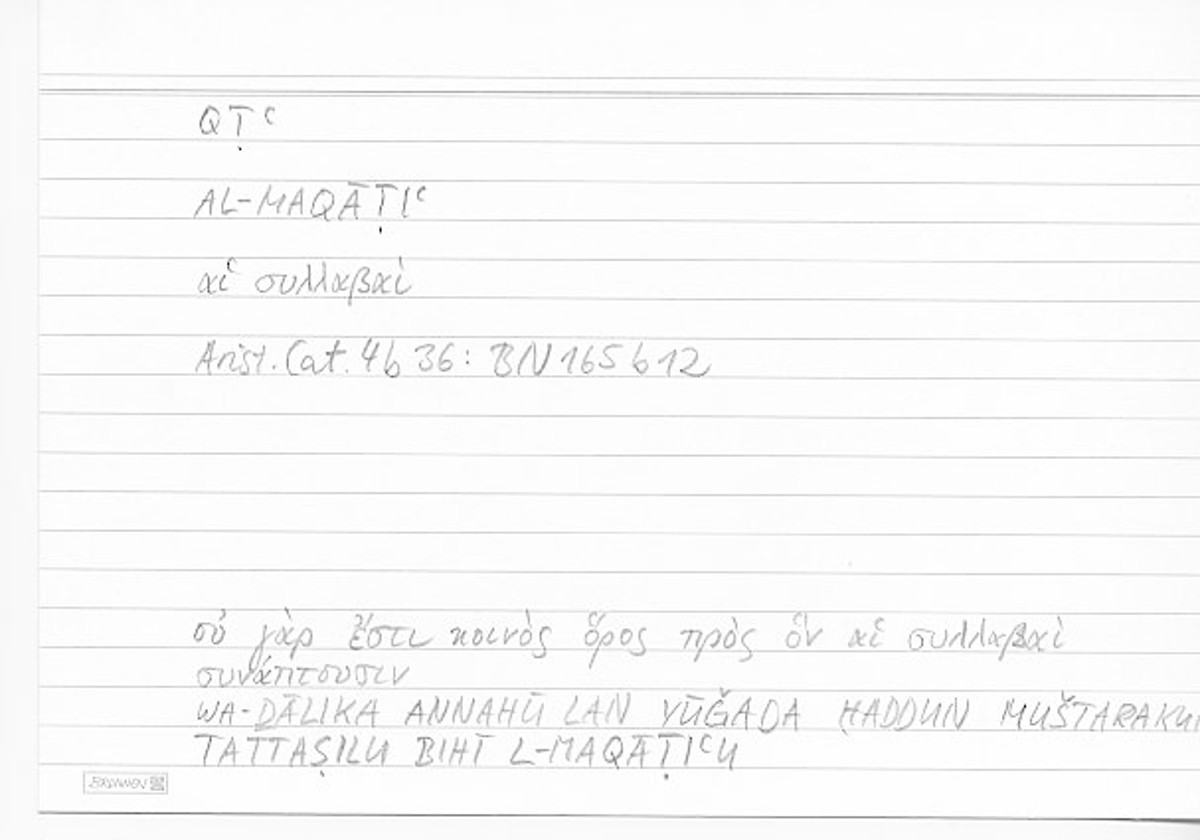 QṬʿ
AL-MAQĀṬIʿ
αἱ συλλαβαὶ
Arist. Cat. 4b 36: BN 165 b 12
οὐ γὰρ ἔστι κοινὸς ὅρος πρὸς ὃν αἱ συλλαβαὶ
συνάπτουσιν
WA-ḎĀLIKA ANNAHŪ LAN YŪǦADA ḤADDUN MUŠTARAKU
TATTAṢILU BIHĪ L-MAQĀṬIʿU
BRUNNEN